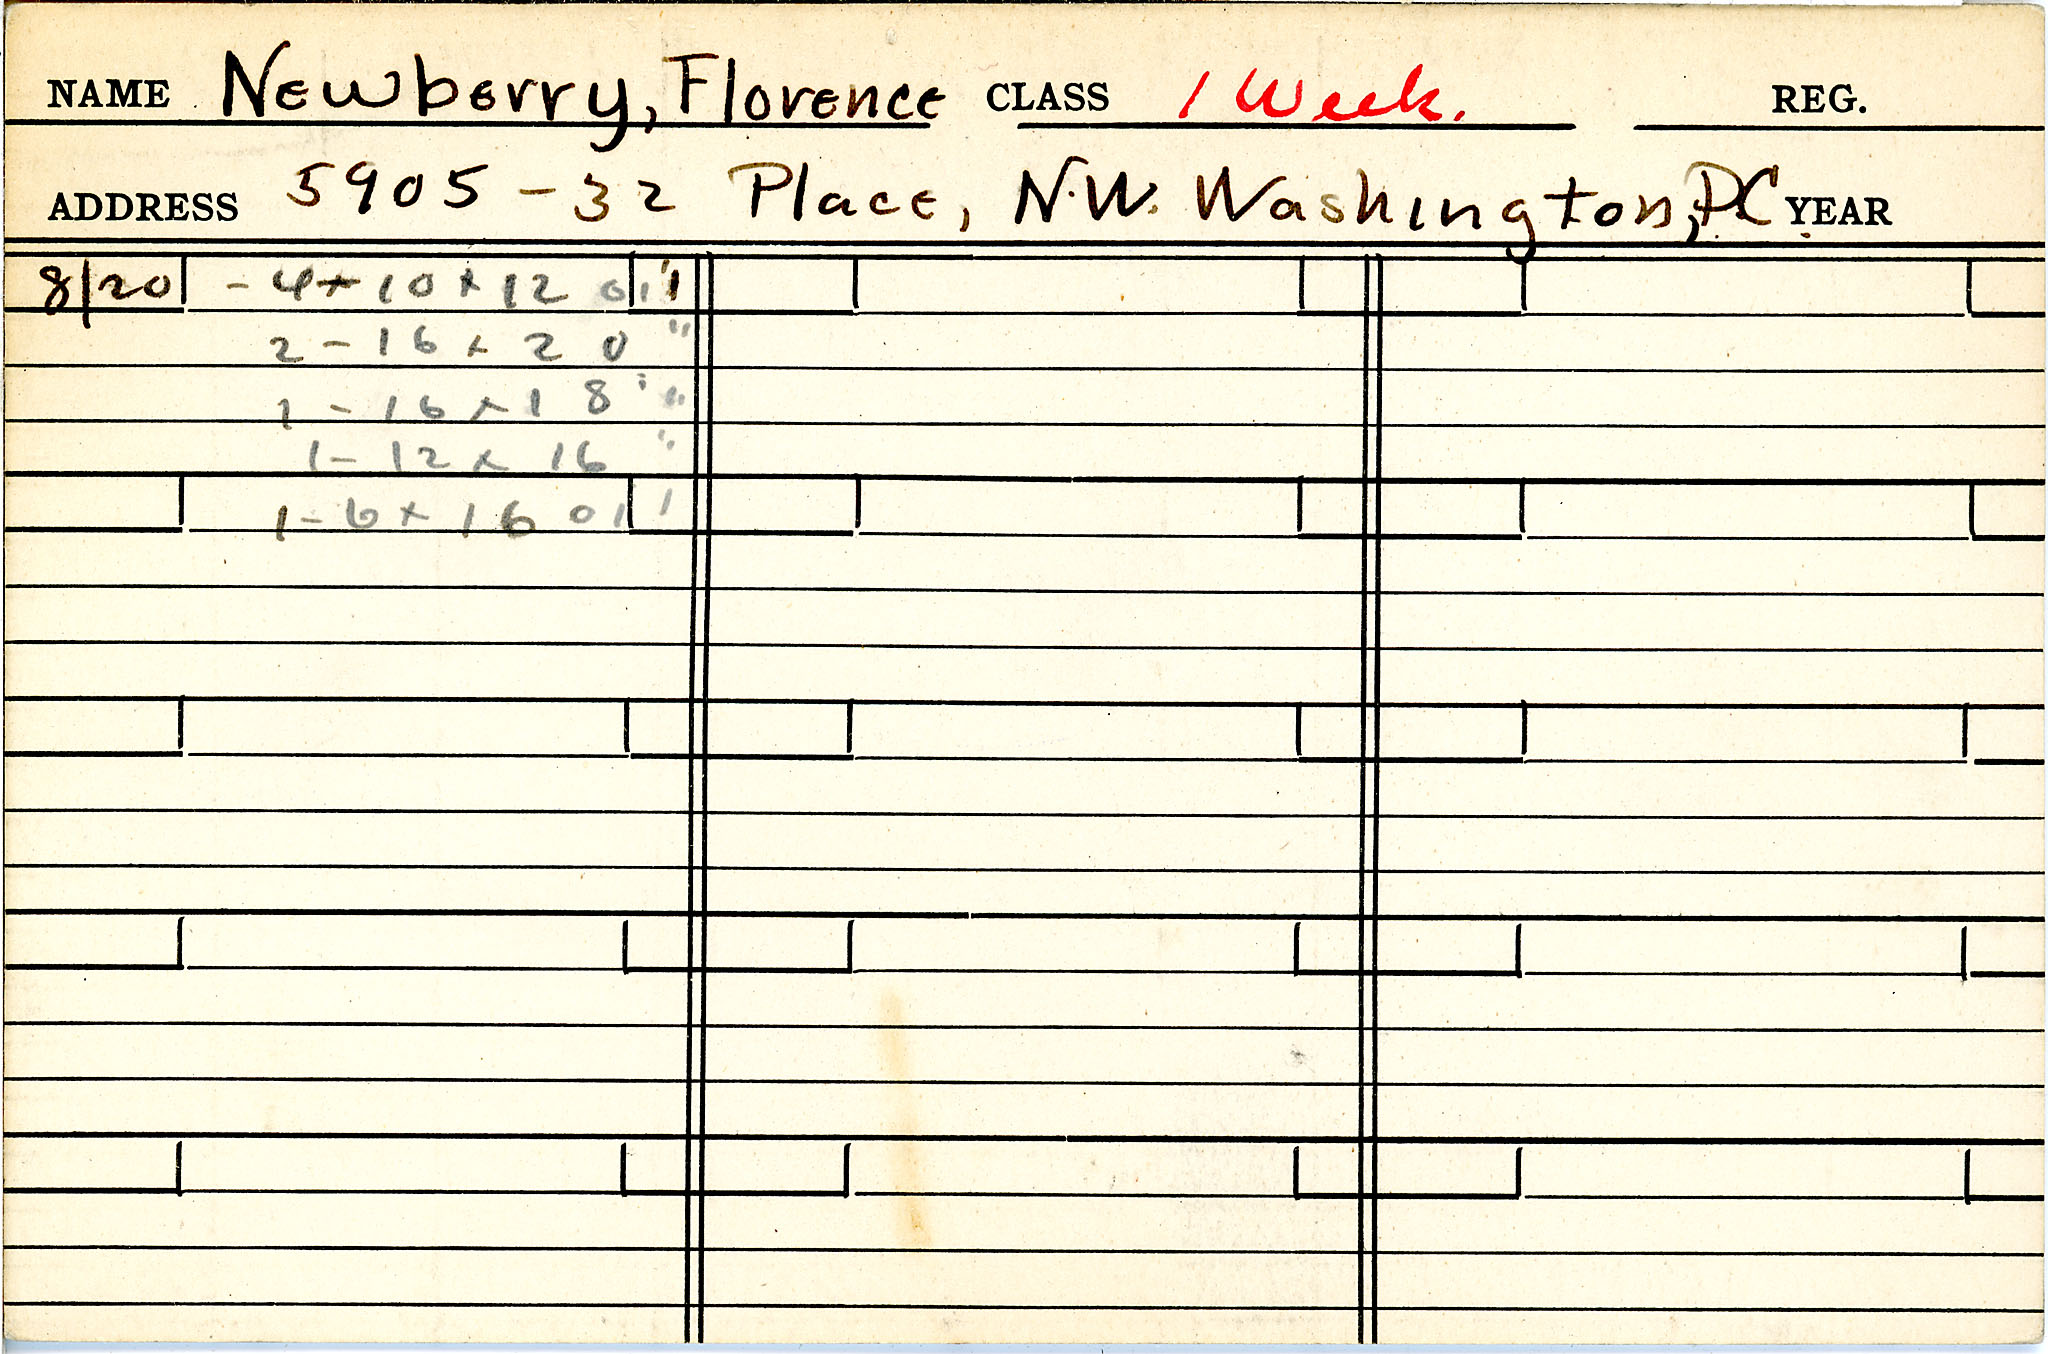 NAME Newberry, Florence CLASS 1 Week. REG.
ADDRESS 5905 - 32 Place, N.W. Washington, DC YEAR
8/20 - 4 x 10 x 12 oil
2 - 16 x 20 "
1 - 16 x 18 "
1 - 12 x 16 "
1 - 6 x 16 oil